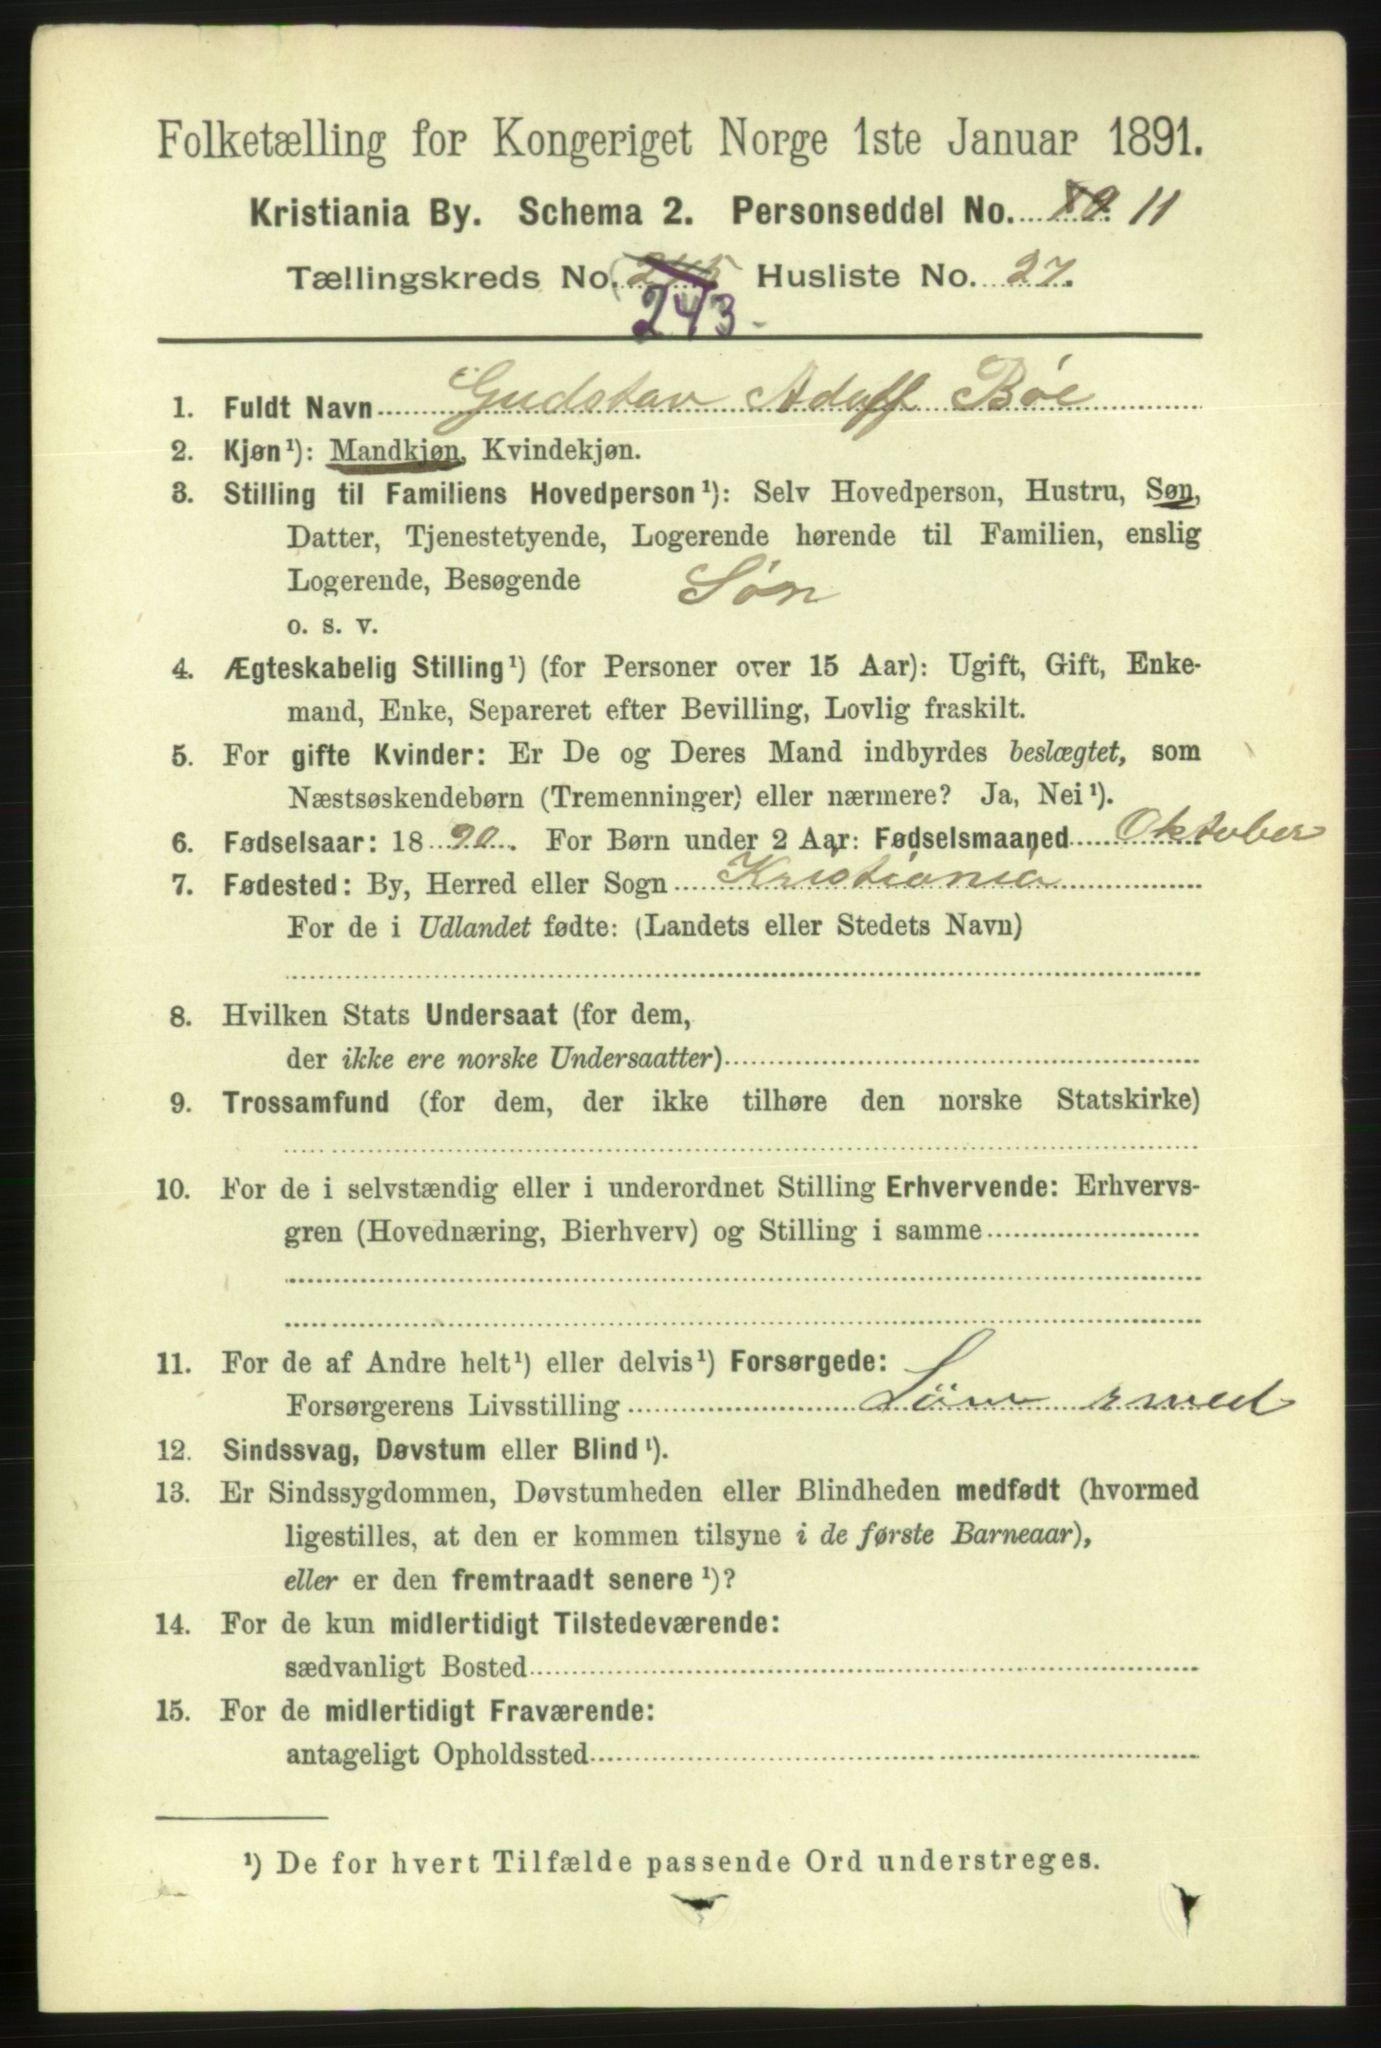 Folketælling for Kongeriget Norge 1ste Januar 1891.
Kristiania By. Schema 2. Personseddel No. 10. 11
Tællingskreds No. 245 Husliste No. 27.
243.
1. Fuldt Navn Gudstav Adolf Bøe
2. Kjøn¹): Mandkjøn, Kvindekjøn.
3. Stilling til Familiens Hovedperson¹): Selv Hovedperson, Hustru, Søn,
Datter, Tjenestetyende, Logerende hørende til Familien, enslig
Logerende, Besøgende Søn
o. s. v.
4. Ægteskabelig Stilling¹) (for Personer over 15 Aar): Ugift, Gift, Enke-
mand, Enke, Separeret efter Bevilling, Lovlig fraskilt.
5. For gifte Kvinder: Er De og Deres Mand indbyrdes beslægtet, som
Næstsøskendebørn (Tremenninger) eller nærmere? Ja, Nei¹).
6. Fødselsaar: 1890. For Børn under 2 Aar: Fødselsmaaned Oktober
7. Fødested: By, Herred eller Sogn Kristiania
For de i Udlandet fødte: (Landets eller Stedets Navn)
8. Hvilken Stats Undersaat (for dem,
der ikke ere norske Undersaatter)
9. Trossamfund (for dem, der ikke tilhøre den norske Statskirke)
10. For de i selvstændig eller i underordnet Stilling Erhvervende: Erhvervs-
gren (Hovednæring, Bierhverv) og Stilling i samme
11. For de af Andre helt¹) eller delvis¹) Forsørgede:
Forsørgerens Livsstilling smed
12. Sindssvag, Døvstum eller Blind¹).
13. Er Sindssygdommen, Døvstumheden eller Blindheden medfødt (hvormed
ligestilles, at den er kommen tilsyne i de første Barneaar),
eller er den fremtraadt senere¹)?
14. For de kun midlertidigt Tilstedeværende:
sædvanligt Bosted
15. For de midlertidigt Fraværende:
antageligt Opholdssted
¹) De for hvert Tilfælde passende Ord understreges.